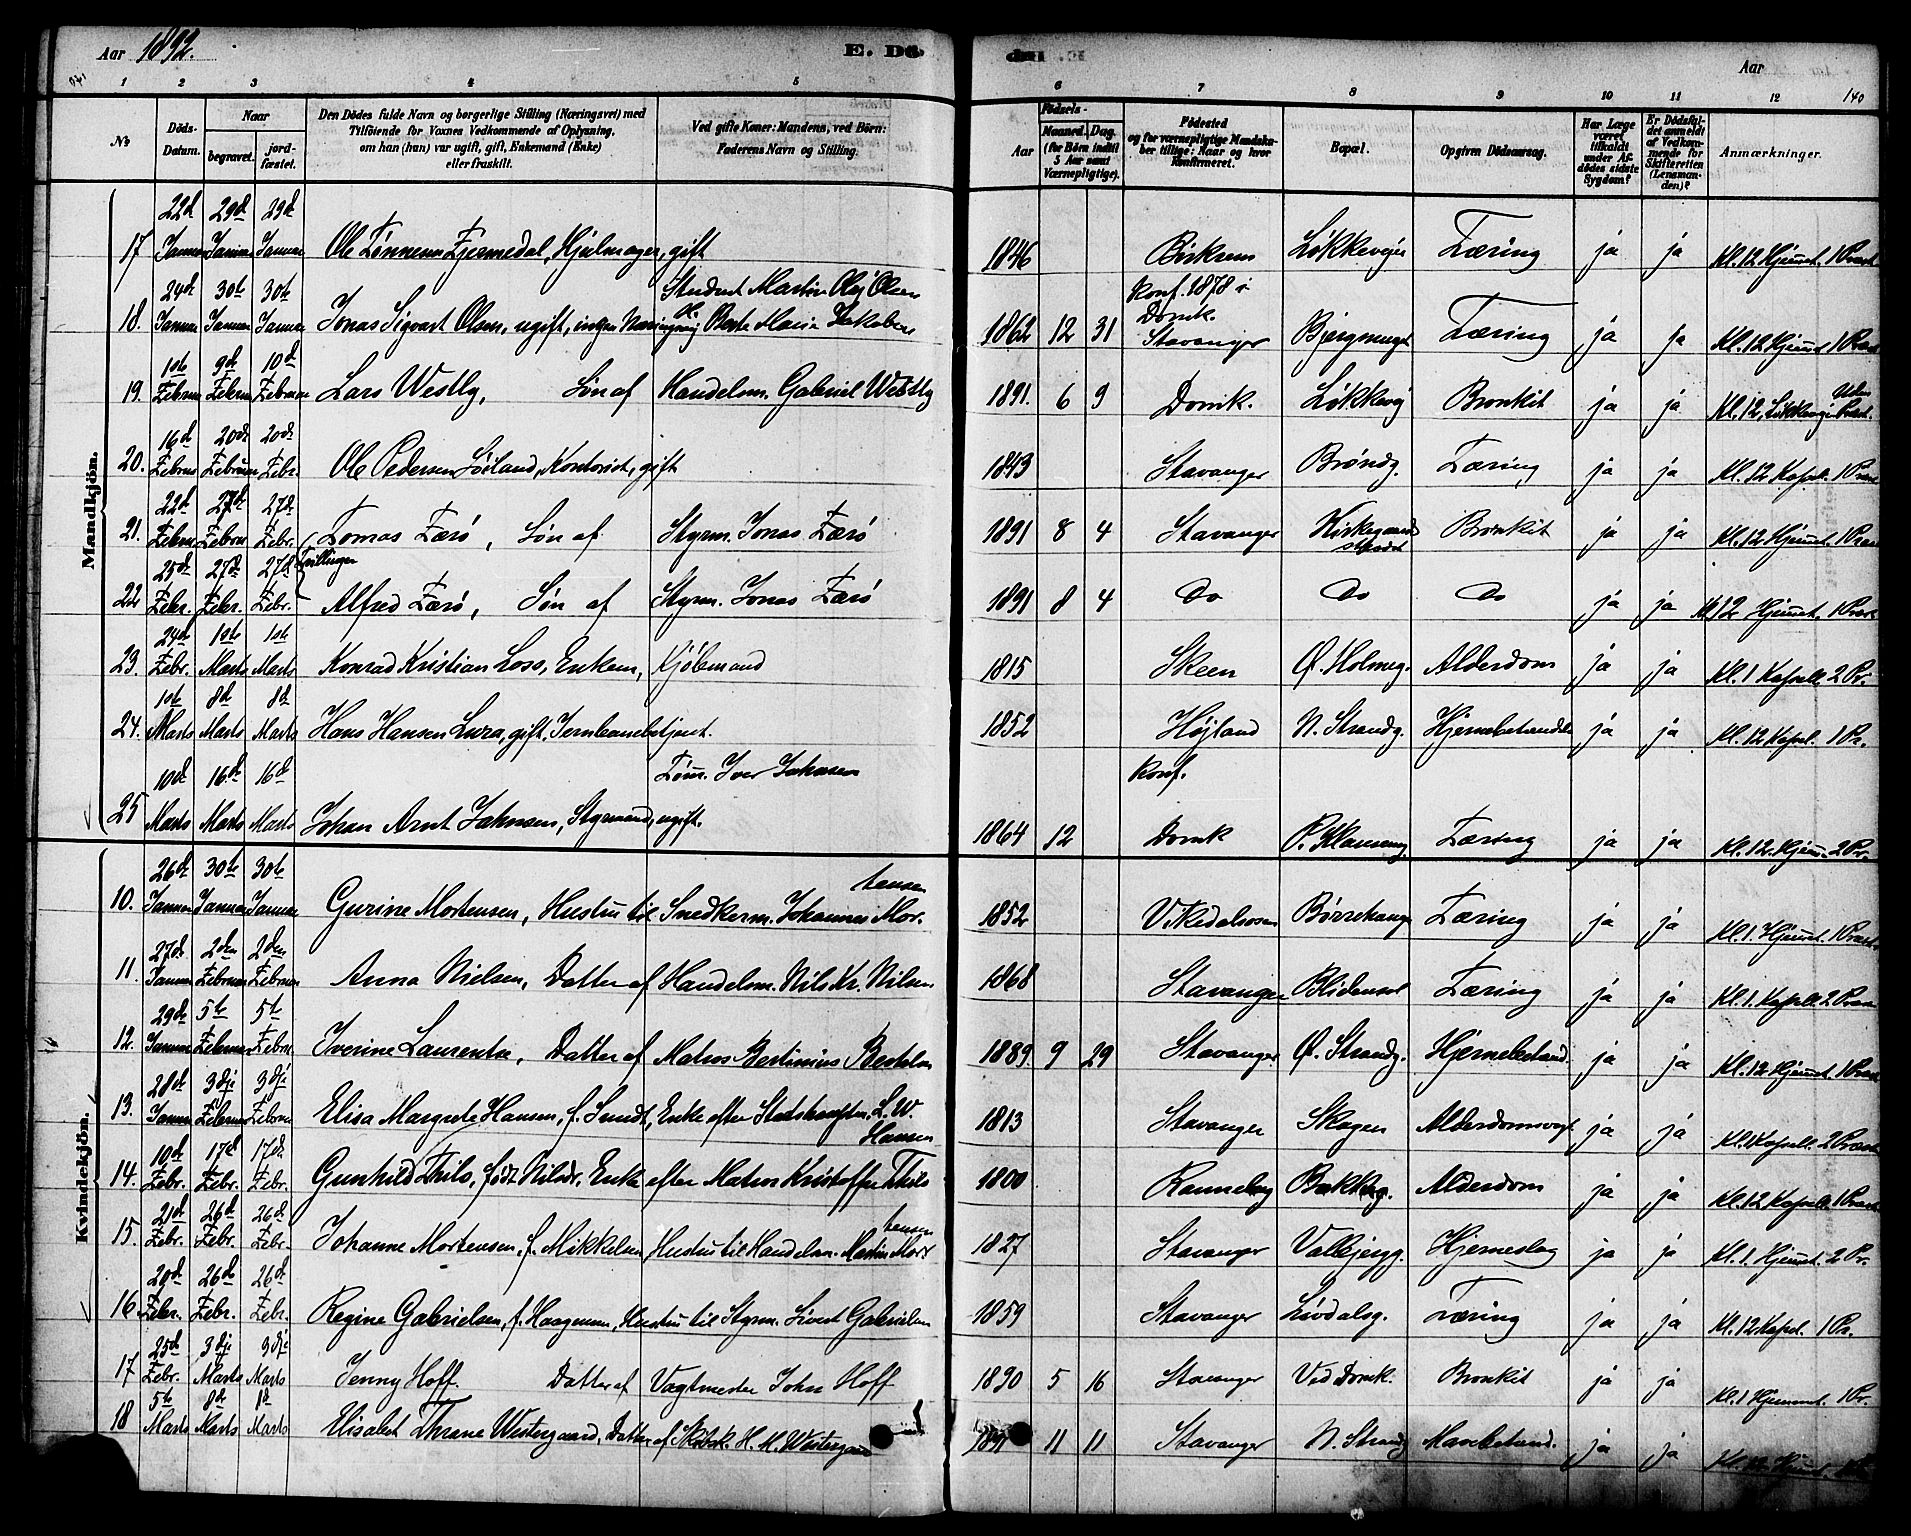 Aar 1892.
E. Dö
Aar
140
1 2 3 4 5 6 7 8 9 10 11 12
No
Döds-Datum.
Naar
begravet.
jord-fæstet.
Den Dödes fulde Navn og borgerlige Stilling (Næringsvei) med
Tilföiende for Voxnes Vedkommende af Oplysning,
om han (hun) var ugift, gift, Enkemand (Enke)
eller fraskilt.
Ved gifte Koner: Mandens, ved Börn:
Faderens Navn og Stilling.
Födsels-
Aar
Maaned. Dag.
(for Börn indtil 5 Aar samt Værnepligtige).
Födested
og for værnepligtige Mandskaber tillige: Naar og hvor Konfirmeret.
Bopæl.
Opgiven Dödsaarsag.
Har Læge været tilkaldt under Afdödes sidste Sygdom?
Er Dödsfaldet anmeldt af Vedkommende for Skifteretten (Lensmanden)?
Anmærkninger.
Mandkjön.
17 22d Januar 29d Januar 29d Januar Ole Tönnesen Fjermedal, Hjulmager, gift 1846 Birkrem Løkkevejen Tæring ja ja Kl. 12 Hjemmet. 1 Præst
18. 24d Januar 30te Januar 30te Januar Jonas Sigvart Olsen, ugift, ingen Næringsvej Student Martin Olaj Olsen og Berte Marie Jakobsen 1862 12 31 Konf. 1878 i Domk. Stavanger Bjergsmuget Tæring ja ja Kl. 12 Hjemmet 1 Præst
19. 1ste Februar 9d Februar 10d Februar Lars Westly, Søn af Handelsm. Gabriel Westly 1891. 6 9 Domk. Løkkevej Bronkit ja ja Kl. 12, Løkkevej Uden Præst.
20. 16d Februar 20de Februar 20de Febr. Ole Pedersen Sørland, Kontorist, gift 1843 Stavanger Brøndg. Tæring ja ja Kl. 12 Kapel. 1 Præst
21. 22d Februar 27de Februar 27de Febr. Tomas Færø, Søn af Styrm. Jonas Færø 1891 8 4 Stavanger Kirkegaardsstrædet Bronkit ja ja Kl. 12 Hjemmet. 1 Præst
Tvillinger
22 25d Febr. 27d Febr. 27d Febr. Alfred Færø, Søn af Styrm. Jonas Færø 1891 8 4 Do Do Do ja ja Kl 12 Hjemmet. 1 Præst
23. 24d Febr. 1ste Marts 1ste Marts Konrad Kristian Loss, Enkem, Kjøbmand 1815 Skeen Ø. Holmeg. Alderdom ja ja Kl. 1 Kapell. 2 Pr.
24. 1ste Marts 8d Marts 8d Marts Hans Hansen Lura, gift, Jernbanebetjent. 1852 Højland N. Strandg. Hjernebetændelse ja ja Kl. 12 Kapel. 1 Pr.
25 10d Marts 16d Marts 16d Marts Johan Arnt Johnsen, Styrmand, ugift. Tøm. Iver Johnsen 1864 12 Konf. Domk Ø. Klaueng. Tæring ja ja Kl. 12. Hjem. 2 Pr.
Kvindekjön.
10. 26d Januar 30te Januar 30te Januar Gurine Mortensen, Hustru til Snedkerm. Johannes Mortensen 1852 Vikedalsosen Børrehaug Tæring ja ja Kl. 1. Hjemmet. 1 Præst
11. 27d Januar 2den Februar 2den Februar Anna Nielsen, Datter af Handelsm. Nils Kr. Nilsen 1868 Stavanger Blidensol Tæring ja ja Kl. 1. Kapell. 2 Præst
12. 29d Januar 5te Februar 5te Februar Iverine Laurentse, Datter af Matros Bertinius Bertelsen 1889. 9 29 Stavanger Ø. Strandg. Hjernebetænd. ja ja Kl. 12 Hjemmet. 1 Præst
13. 28d Januar 3dje Februar 3dje Februar Elisa Margrete Hansen, f. Smidt, Enke efter Stadshauptm. L. W. Hansen 1813 Stavanger Skagen Alderdomssvagh ja ja Kl. 1 Kapell. 2 Præst
14. 10d Febr. 17d Febr. 17de Febr. Gunhild Thils, født Nilsdr. Enke efter Matros Kristoffer Thils 1800 Ranneberg Bakkeg. Alderdom ja ja Kl. 12 Kapell. 1 Præst
15. 21d Febr. 26d Febr. 26d Febr. Johanne Mortensen, f. Mikkelsen Hustru til Handelsm. Martin Mortensen 1827 Stavanger Vallbjergg. Hjerneslag ja ja Kl. 1 Hjemmet. 2 Pr.
16 20d Febr. 26d Febr. 26d Febr. Regine Gabrielsen, f. Haagensen, Hustru til Styrm. Sivert Gabrielsen 1859 Stavanger Løvdalsg. Tæring ja ja Kl. 12 Kapel. 1 Pr.
17 25d Febr. 3dje Marts 3dje Marts Jenny Hoff. Datter af Vagtmester John Hoff 1890 5 16 Stavanger Ved Domk. Bronkit ja ja Kl. 1 Hjemmet. 1 Pr.
18 5te Marts 8de Marts 8de Marts Elisabet Thrane Westergaard, Datter af Skibsk. H. M. Westergaard 1891 11 11 Stavanger N. Strandg Mavebetænd. ja ja Kl. 12 Hjemmet.